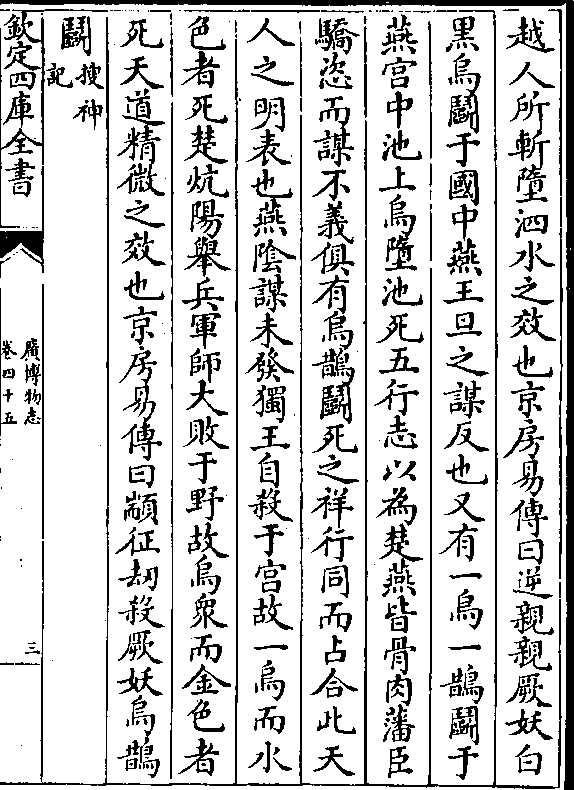 越人所斬墮泗水之效也京房易傳曰逆親親厥妖白
黑烏鬭于國中燕王旦之謀反也又有一烏一鵲鬭于
燕宫中池上烏墮池死五行志以為楚燕皆骨肉藩臣
驕恣而謀不義俱有烏鵲鬭死之祥行同而占合此天
人之明表也燕陰謀未發獨王自殺于宫故一烏而水
色者死楚炕陽舉兵軍師大敗于野故烏衆而金色者
死天道精微之效也京房易傳曰顓征刼殺厥妖烏鵲
鬭搜神記
欽定四庫全書
廣博物志
卷四十五
三